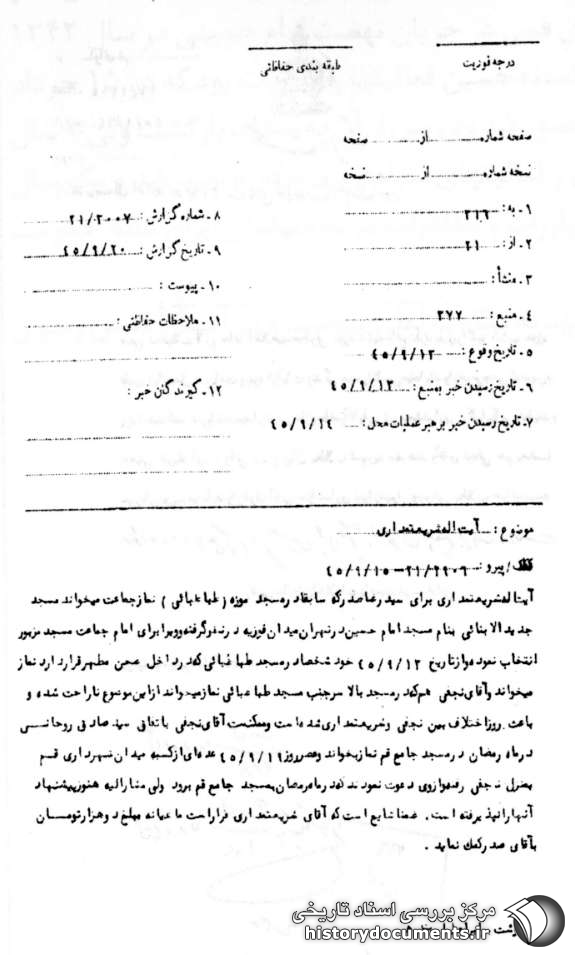 درجه فوریت
طبقه بندی حفاظتی
صفحه شماره ........ از ........ صفحه
نسخه شماره ........ از ........ نسخه
۱ - به : ۳۱۶
۲ - از : ۲۱
۳ - منشأ :
۴ - منبع : ۳۷۷
۵ - تاریخ وقوع : ۴۵/۹/۱۳
۶ - تاریخ رسیدن خبر بمنبع : ۴۵/۹/۱۳
۷ - تاریخ رسیدن خبر برهبر عملیات محل : ۴۵/۹/۱۴
۸ - شماره گزارش : ۲۱/۳۰۰۷
۹ - تاریخ گزارش : ۴۵/۹/۲۰
۱۰ - پیوست :
۱۱ - ملاحظات حفاظتی :
۱۲ - گیرندگان خبر :
موضوع : آیت اله شریعتمداری
پیرو : ۲۱/۲۹۰۶ - ۴۵/۹/۱۵
آیت اله شریعتمداری برای سید رضا صدر که سابقا در مسجد موزه ( طباطبائی ) نماز جماعت میخواند مسجد
جدید الابنائی بنام مسجد امام حسین در تهران میدان فوزیه در نظر گرفته و ویرا برای امام جماعت مسجد مزبور
انتخاب نموده و از تاریخ ۴۵/۹/۱۳ خود شخصا در مسجد طباطبائی که در داخل صحن مطهر قرار دارد نماز
میخواند و آقای نجفی هم که در مسجد بالا سر جنب مسجد طباطبائی نماز میخواند از این موضوع ناراحت شده و
باعث بروز اختلاف بین نجفی و شریعتمداری شده است و ممکنست آقای نجفی با تفاق سید صادق روحانی
در ماه رمضان در مسجد جامع قم نماز بخواند و عصر روز ۴۵/۹/۱۹ عده‌ای از کسبه میدان شهرداری قم
بمنزل نجفی رفته و از وی دعوت نمودند که در ماه رمضان بمسجد جامع قم برود ولی مشارالیه هنوز پیشنهاد
آنها را نپذیرفته است . ضمنا شایع است که آقای شریعتمداری قرار است ماهیانه مبلغ دو هزار تومان
بآقای صدر کمک نماید .
مرکز بررسی اسناد تاریخی
historydocuments.ir